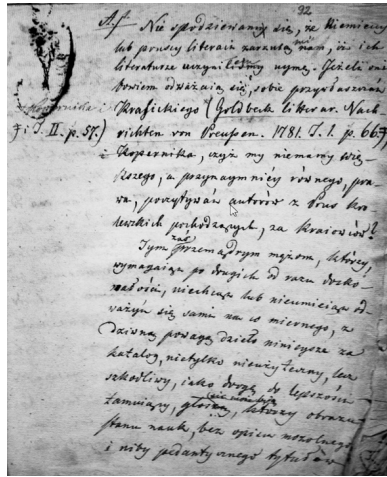 32
Nie spodziewamy się, że Niemieccy
lub pruscy literaci zarzucą nam, iż ich
literaturze uczyniliśmy ujmę. Jeżeli oni
bowiem odważają się, sobie przyswaszczać
Krasickiego (Goldbeck litterar. Nach
richten von Preussen. 1781. T. 1. p. 66
i T. II. p. 57.)
i Kopernika, czyż my niemamy więk
szego, a przynaymniéy równego, pra
wa, poczytywać autorów z Prus Kró
lewskich pochodzących, za kraiowców?
Tym zaś przemądrym mężom, którzy,
wymagaiąc po drugich od razu dosko
nałości, niechcąc lub nieumieiąc od
ważyć się sami na co miernego, z
dziwną powagą dzieło ninieysze za
katalog, nietylko nieużyteczny, lecz
szkodliwy, iako drogę do lepszości
tamuiący, którzy obrazu
stanu nauk, bez opisu mozolnego
i niby pedantycznego tytułów